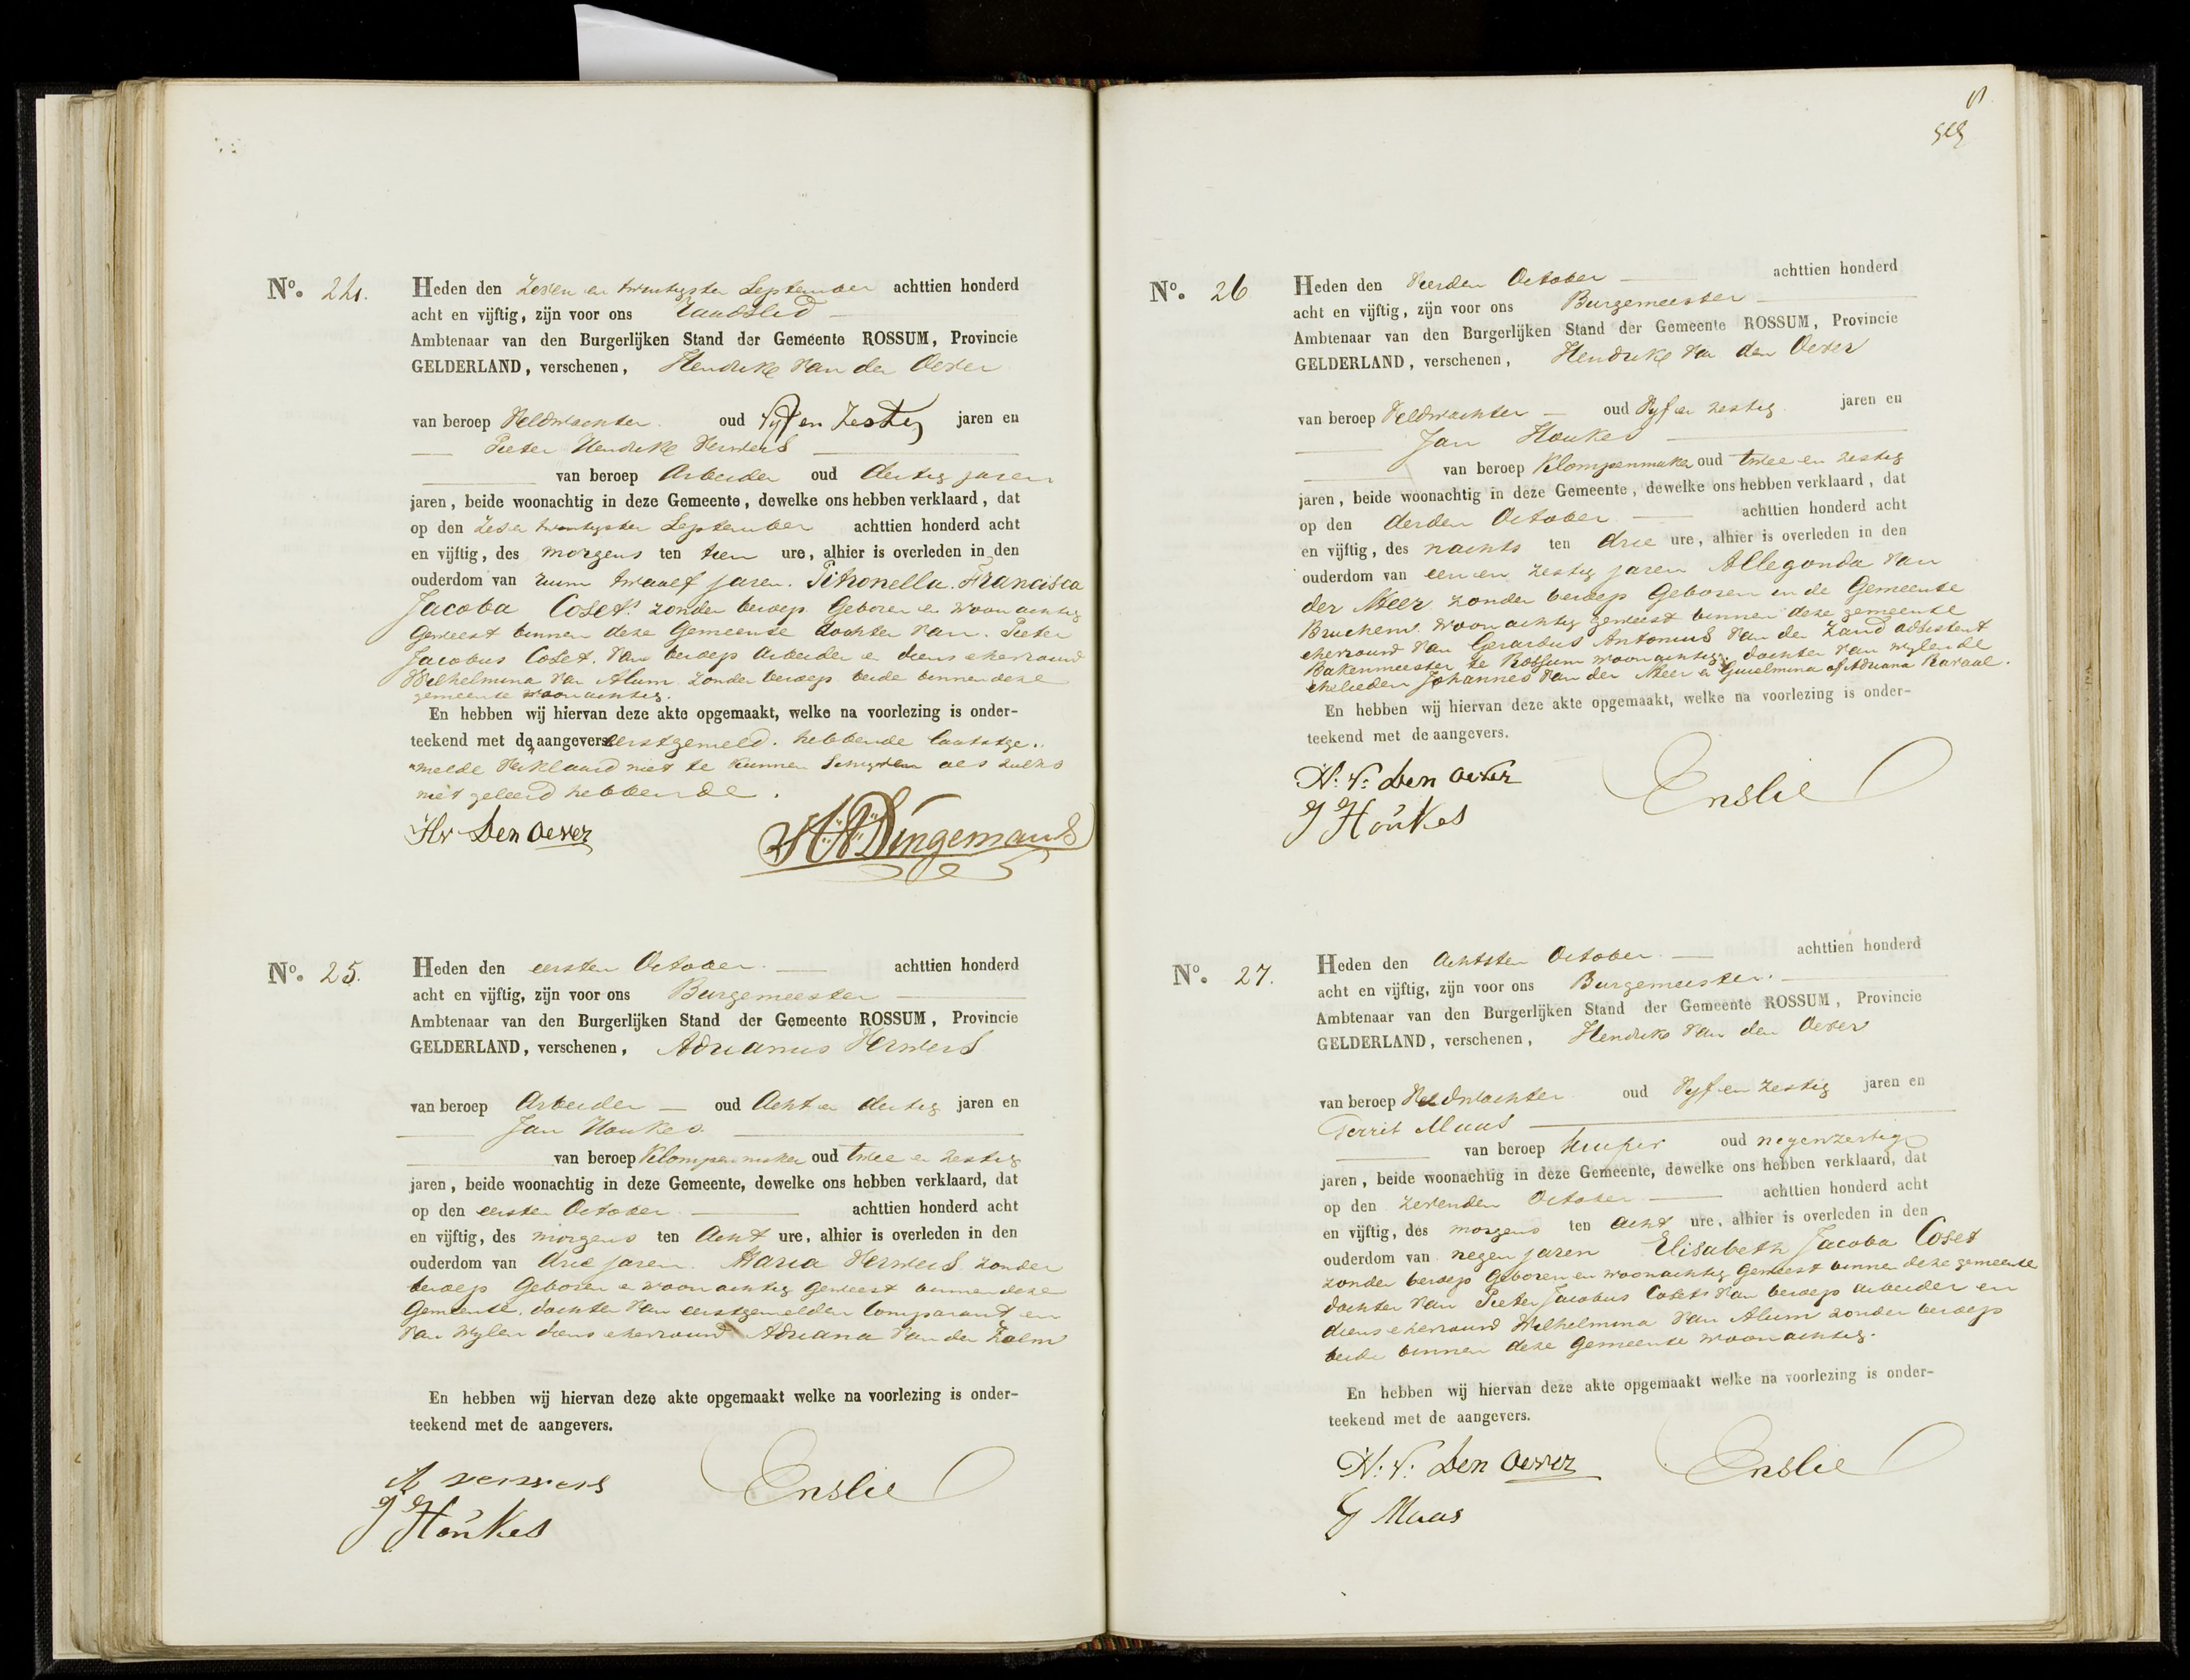 No. 24.
Heden den zeven en twintigsten September achttien honderd
acht en vijftig, zijn voor ons Raadslid
Ambtenaar van den Burgerlijken Stand der Gemeente ROSSUM, Provincie
GELDERLAND, verschenen, Hendrik van den Oever
van beroep Veldwachter oud Vijf en Zestig jaren en
Pieter Hendrik Verweis
van beroep Arbeider oud dertig jaren
jaren, beide woonachtig in deze Gemeente, dewelke ons hebben verklaard, dat
op den zes en twintigsten September achttien honderd acht
en vijftig, des morgens ten tien ure, alhier is overleden in den
ouderdom van ruim twaalf jaren. Pitronella Francisca
Jacoba Coset. zonder beroep Geboren en woonachtig
geweest binnen deze Gemeente dochter van Pieter
Jacobus Coset. van beroep Arbeider en diens ehevrouw
Wilhelmina van Alum zonder beroep beide binnen deze
gemeente woonachtig.
En hebben wij hiervan deze akte opgemaakt, welke na voorlezing is onder-
teekend met de aangever eerstgemeld. hebbende laatstge-
melde verklaard niet te kunnen schrijven als zulks
niet geleerd hebbende.
Hv Den Oever
Dingemans
No. 25.
Heden den eersten October achttien honderd
acht en vijftig, zijn voor ons Burgemeester
Ambtenaar van den Burgerlijken Stand der Gemeente ROSSUM, Provincie
GELDERLAND, verschenen, Adrianus Verweis
van beroep Arbeider oud Acht en dertig jaren en
Jan Houkes
van beroep Klompenmaker oud twee en zestig
jaren, beide woonachtig in deze Gemeente, dewelke ons hebben verklaard, dat
op den eersten October achttien honderd acht
en vijftig, des morgens ten Acht ure, alhier is overleden in den
ouderdom van drie jaren. Maria Verweis zonder
beroep Geboren en woonachtig geweest binnen deze
Gemeente. dochter van eerstgemelden Comparant en
van wylen diens ehevrouw Adriana van der Zalm
En hebben wij hiervan deze akte opgemaakt welke na voorlezing is onder-
teekend met de aangevers.
A verweis
J Houkes
Enslie
No. 26
Heden den Vierden October achttien honderd
acht en vijftig, zijn voor ons Burgemeester
Ambtenaar van den Burgerlijken Stand der Gemeente ROSSUM, Provincie
GELDERLAND, verschenen, Hendrik van den Oever
van beroep Veldwachter oud Vyf en zestig jaren en
Jan Houkes
van beroep Klompenmaker oud twee en zestig
jaren, beide woonachtig in deze Gemeente, dewelke ons hebben verklaard, dat
op den derden October achttien honderd acht
en vijftig, des nachts ten drie ure, alhier is overleden in den
ouderdom van een en zestig jaren Allegonda van
der Meer zonder beroep Geboren in de Gemeente
Bruchem. woonachtig geweest binnen deze gemeente
ehevrouw van Gerardus Antonius van der Zand adsistent
Bakenmeester te Rossum woonachtig, dochter van wylen de
ehelieden Johannes van der Meer en Guielmina of Adriana Ravaal.
En hebben wij hiervan deze akte opgemaakt, welke na voorlezing is onder-
teekend met de aangevers.
H. V. Den Oever
J Houkes
Enslie
No. 27.
Heden den Achtsten October achttien honderd
acht en vijftig, zijn voor ons Burgemeester.
Ambtenaar van den Burgerlijken Stand der Gemeente ROSSUM, Provincie
GELDERLAND, verschenen, Hendrik van den Oever
van beroep Veldwachter oud Vyf en zestig jaren en
Gerrit Maas
van beroep Kuiper oud negenzestig
jaren, beide woonachtig in deze Gemeente, dewelke ons hebben verklaard, dat
op den zevenden October achttien honderd acht
en vijftig, des morgens ten Acht ure, alhier is overleden in den
ouderdom van negen jaren Elisabeth Jacoba Coset
zonder beroep Geboren en woonachtig Geweest binnen deze gemeente
dochter van Pieter Jacobus Coset van beroep arbeider en
diens ehevrouw Wilhelmina van Alum zonder beroep
beide binnen deze Gemeente woonachtig.
En hebben wij hiervan deze akte opgemaakt welke na voorlezing is onder-
teekend met de aangevers.
H. V. Den Oever
G Maas
Enslie